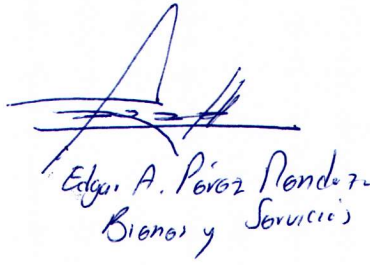 Edgar A. Pérez Mendoza
Bienes y Servicios